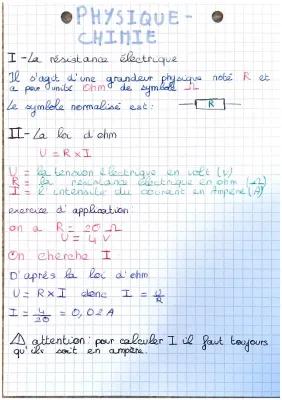 PHYSIQUE-
CHIMIE
I - La résistance électrique
Il s'agit d'une grandeur physique noté R et
a pour unité Ohm de symbole Ω
Le symbole normalisé est :
R
II - La loi d'ohm
U = R x I
U = la tension électrique en volt (V)
R = la résistance électrique en ohm (Ω)
I = l'intensité du courant en Ampère (A)
exercice d'application :
on a R = 20 Ω
U = 4 V
On cherche I
D'après la loi d'ohm
U = R x I donc I = U/R
I = 4/20 = 0,02 A
⚠ attention : pour calculer I il faut toujours
qu'ils soit en ampère.